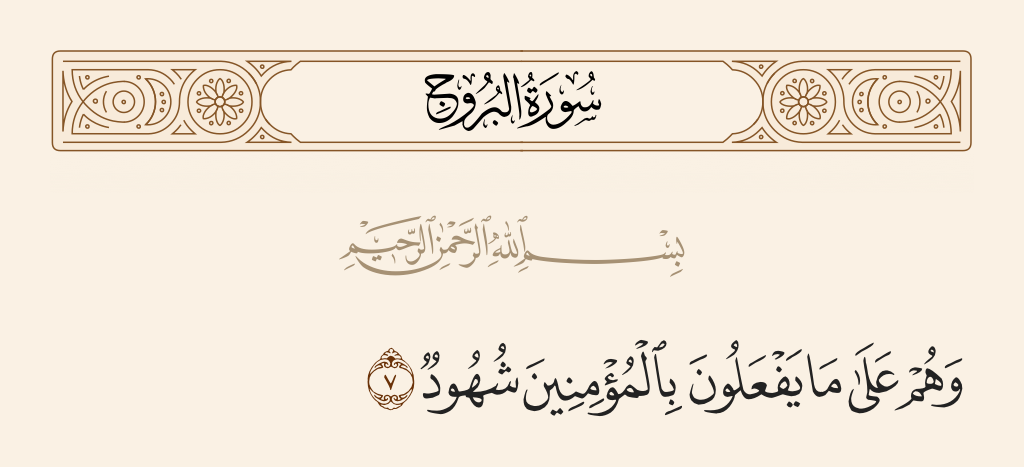 سُورَةُ البُرُوجِ
بِسْمِ ٱللَّهِ ٱلرَّحْمَٰنِ ٱلرَّحِيمِ
وَهُمْ عَلَىٰ مَا يَفْعَلُونَ بِٱلْمُؤْمِنِينَ شُهُودٌ ٧